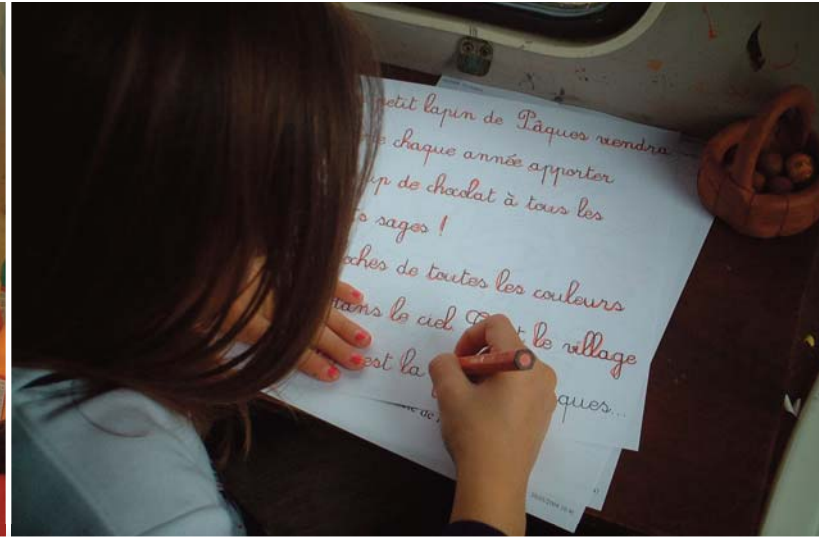 petit lapin de Pâques viendra
chaque année apporter
de chocolat à tous les
sages !
de toutes les couleurs
dans le ciel le village
est la